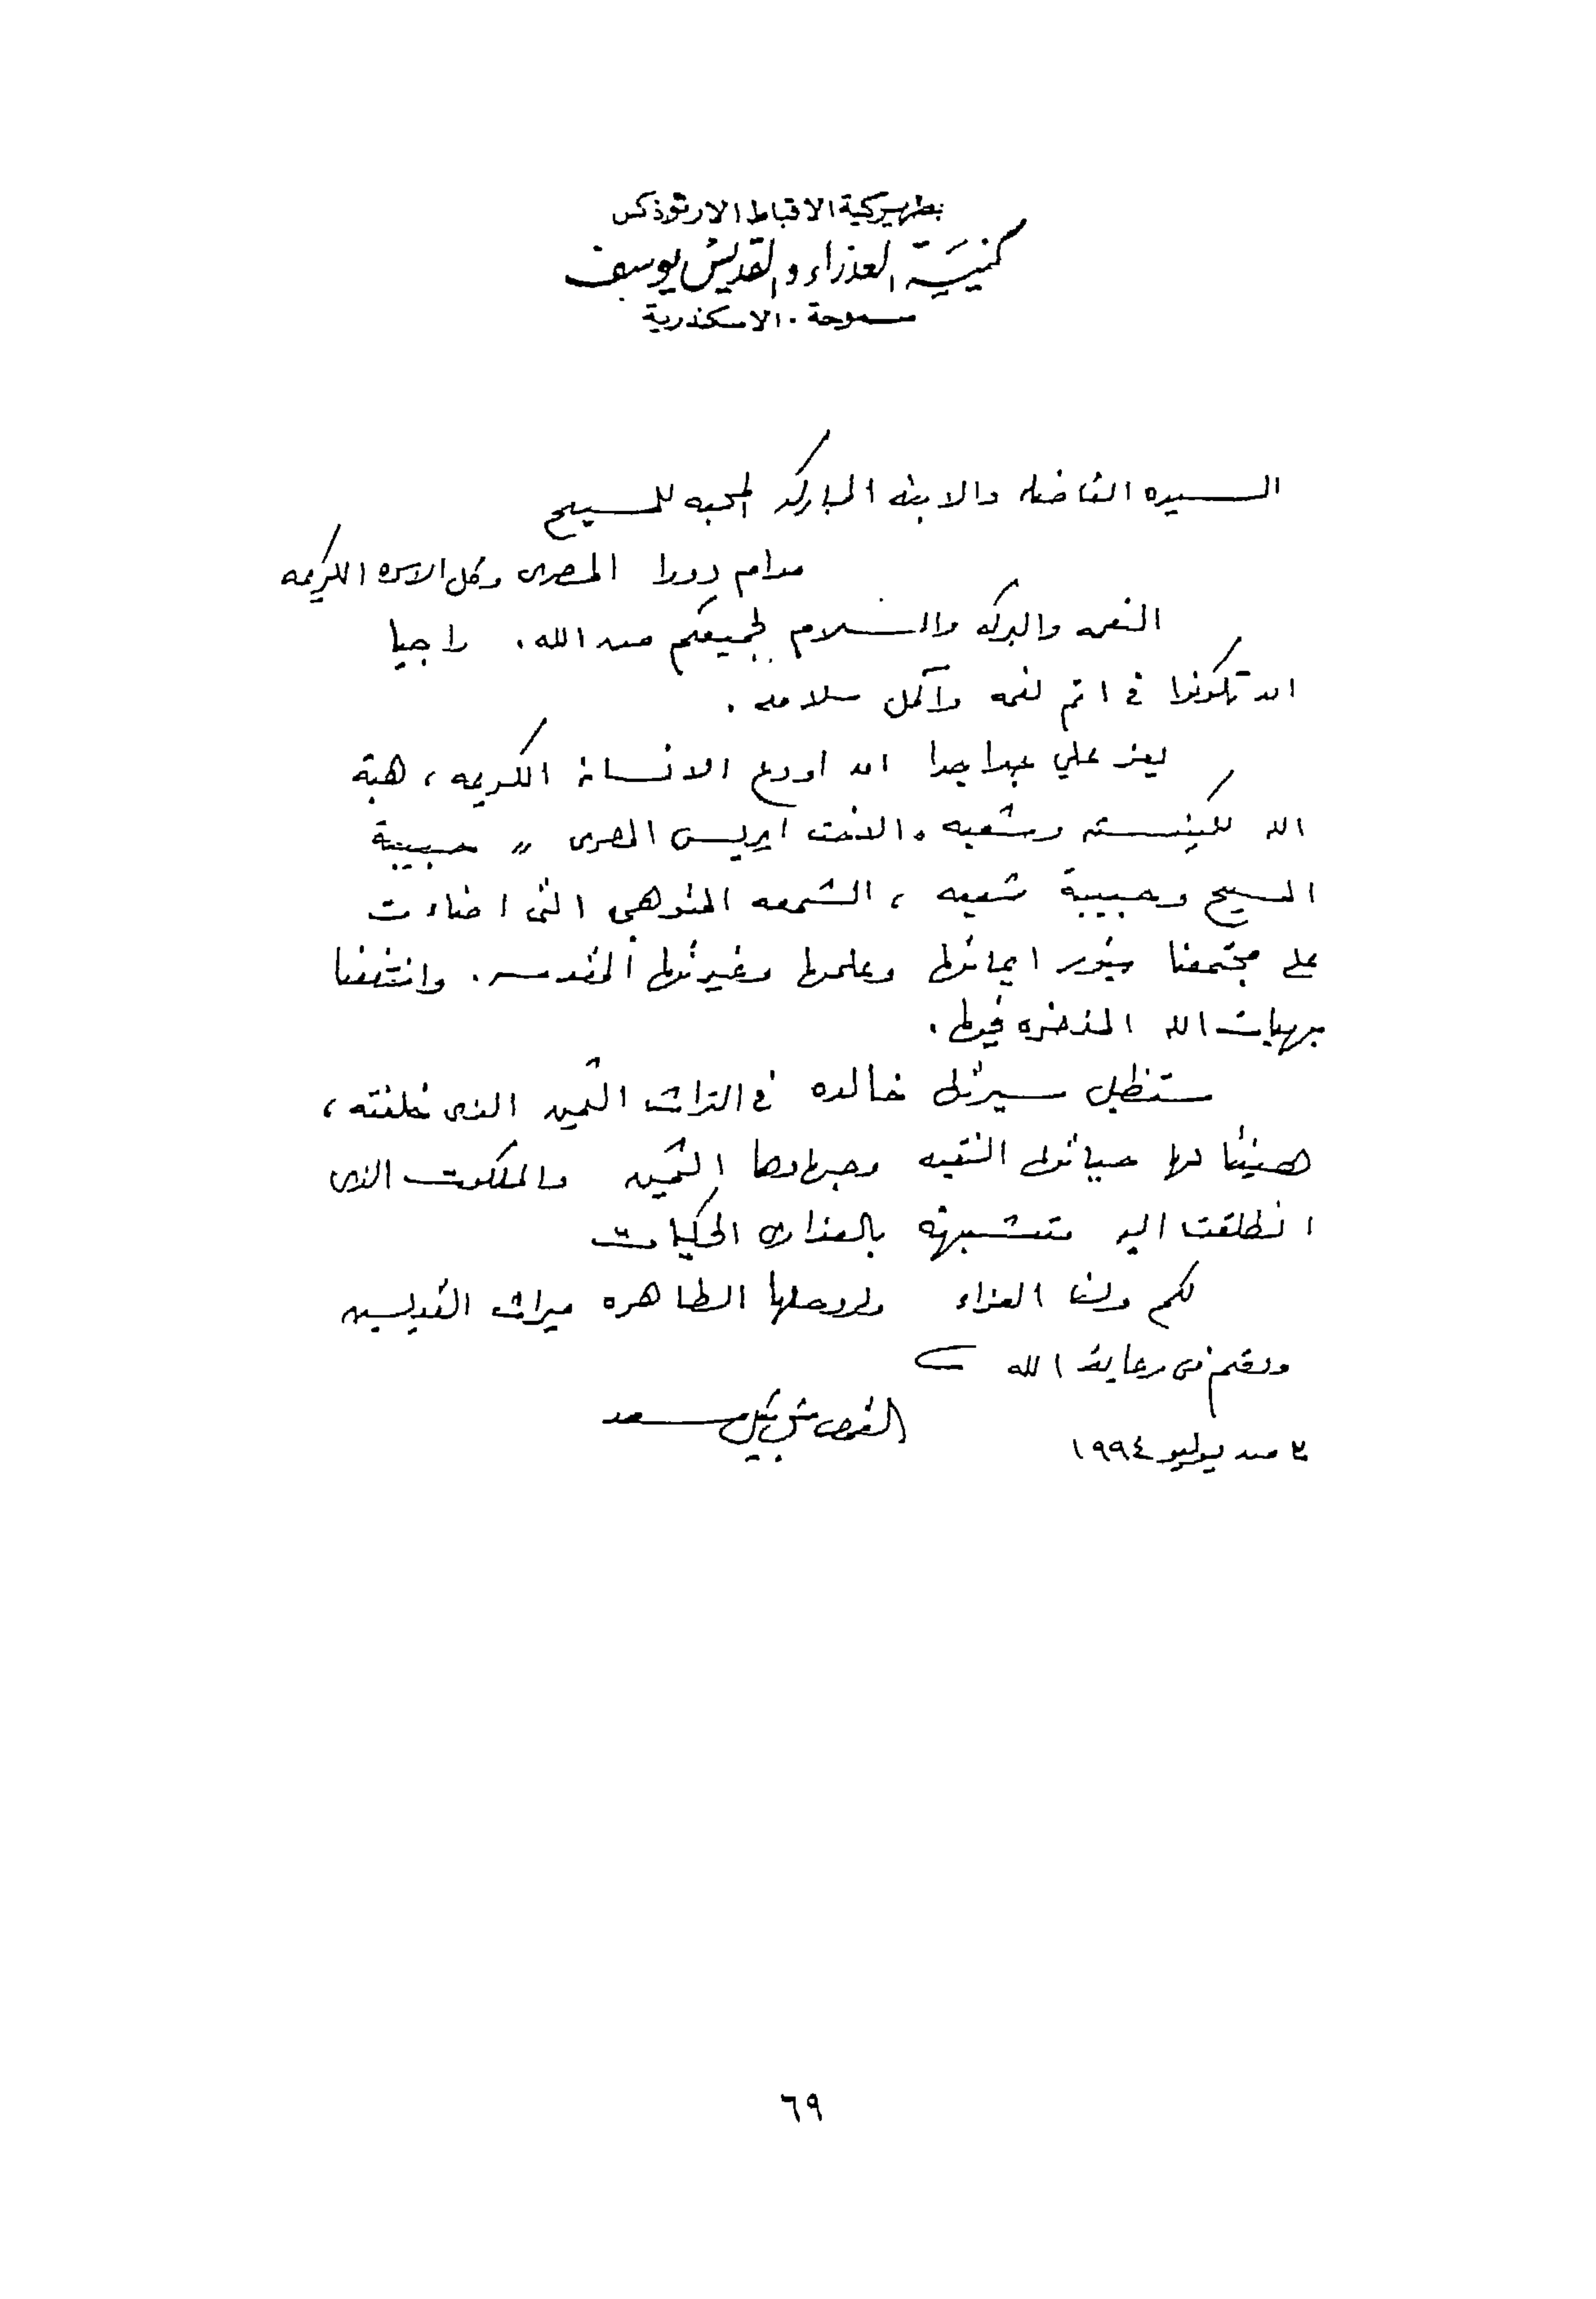 بطريركية الاقباط الارثوذكس
كنيسة العذراء والقديس يوسف
سموحة . الاسكندرية
السيده الفاضله والابنه المباركه المحبه للمسيح
مدام دورا المصرى وكل الاسره الكريمه
النعمه والبركه والسلام لجميعكم من الله . راجيا
ان تكونوا فى اتم نعمه وأكمل سلامه .
يعز علي جدا جدا ان اودع الانسانه الكريمه ، هبة
الله لكنيسته وشعبه . الاخت ايريس المصرى " حبيبة
المسيح وحبيبة شعبه ، الشمعه التى اضاءت
على مجتمعنا بنور ايمانها وعلمها وغيرتها المقدسه . وانتفعنا
بهبات الله المذخره فيها .
ستظل سيرتها خالده فى التراث الثمين الذى خلفته ،
هنيئا لها حياتها النقيه وجهادها الثمين والملكوت الذى
انطلقت اليه متشبهه بالعذارى الحكيمات
لكم ولنا العزاء ولروحها الطاهره ميراث القديسين
ودمتم فى رعاية الله
القمص ميخائيل سعد
٢ من يوليو ١٩٩٤
٦٩